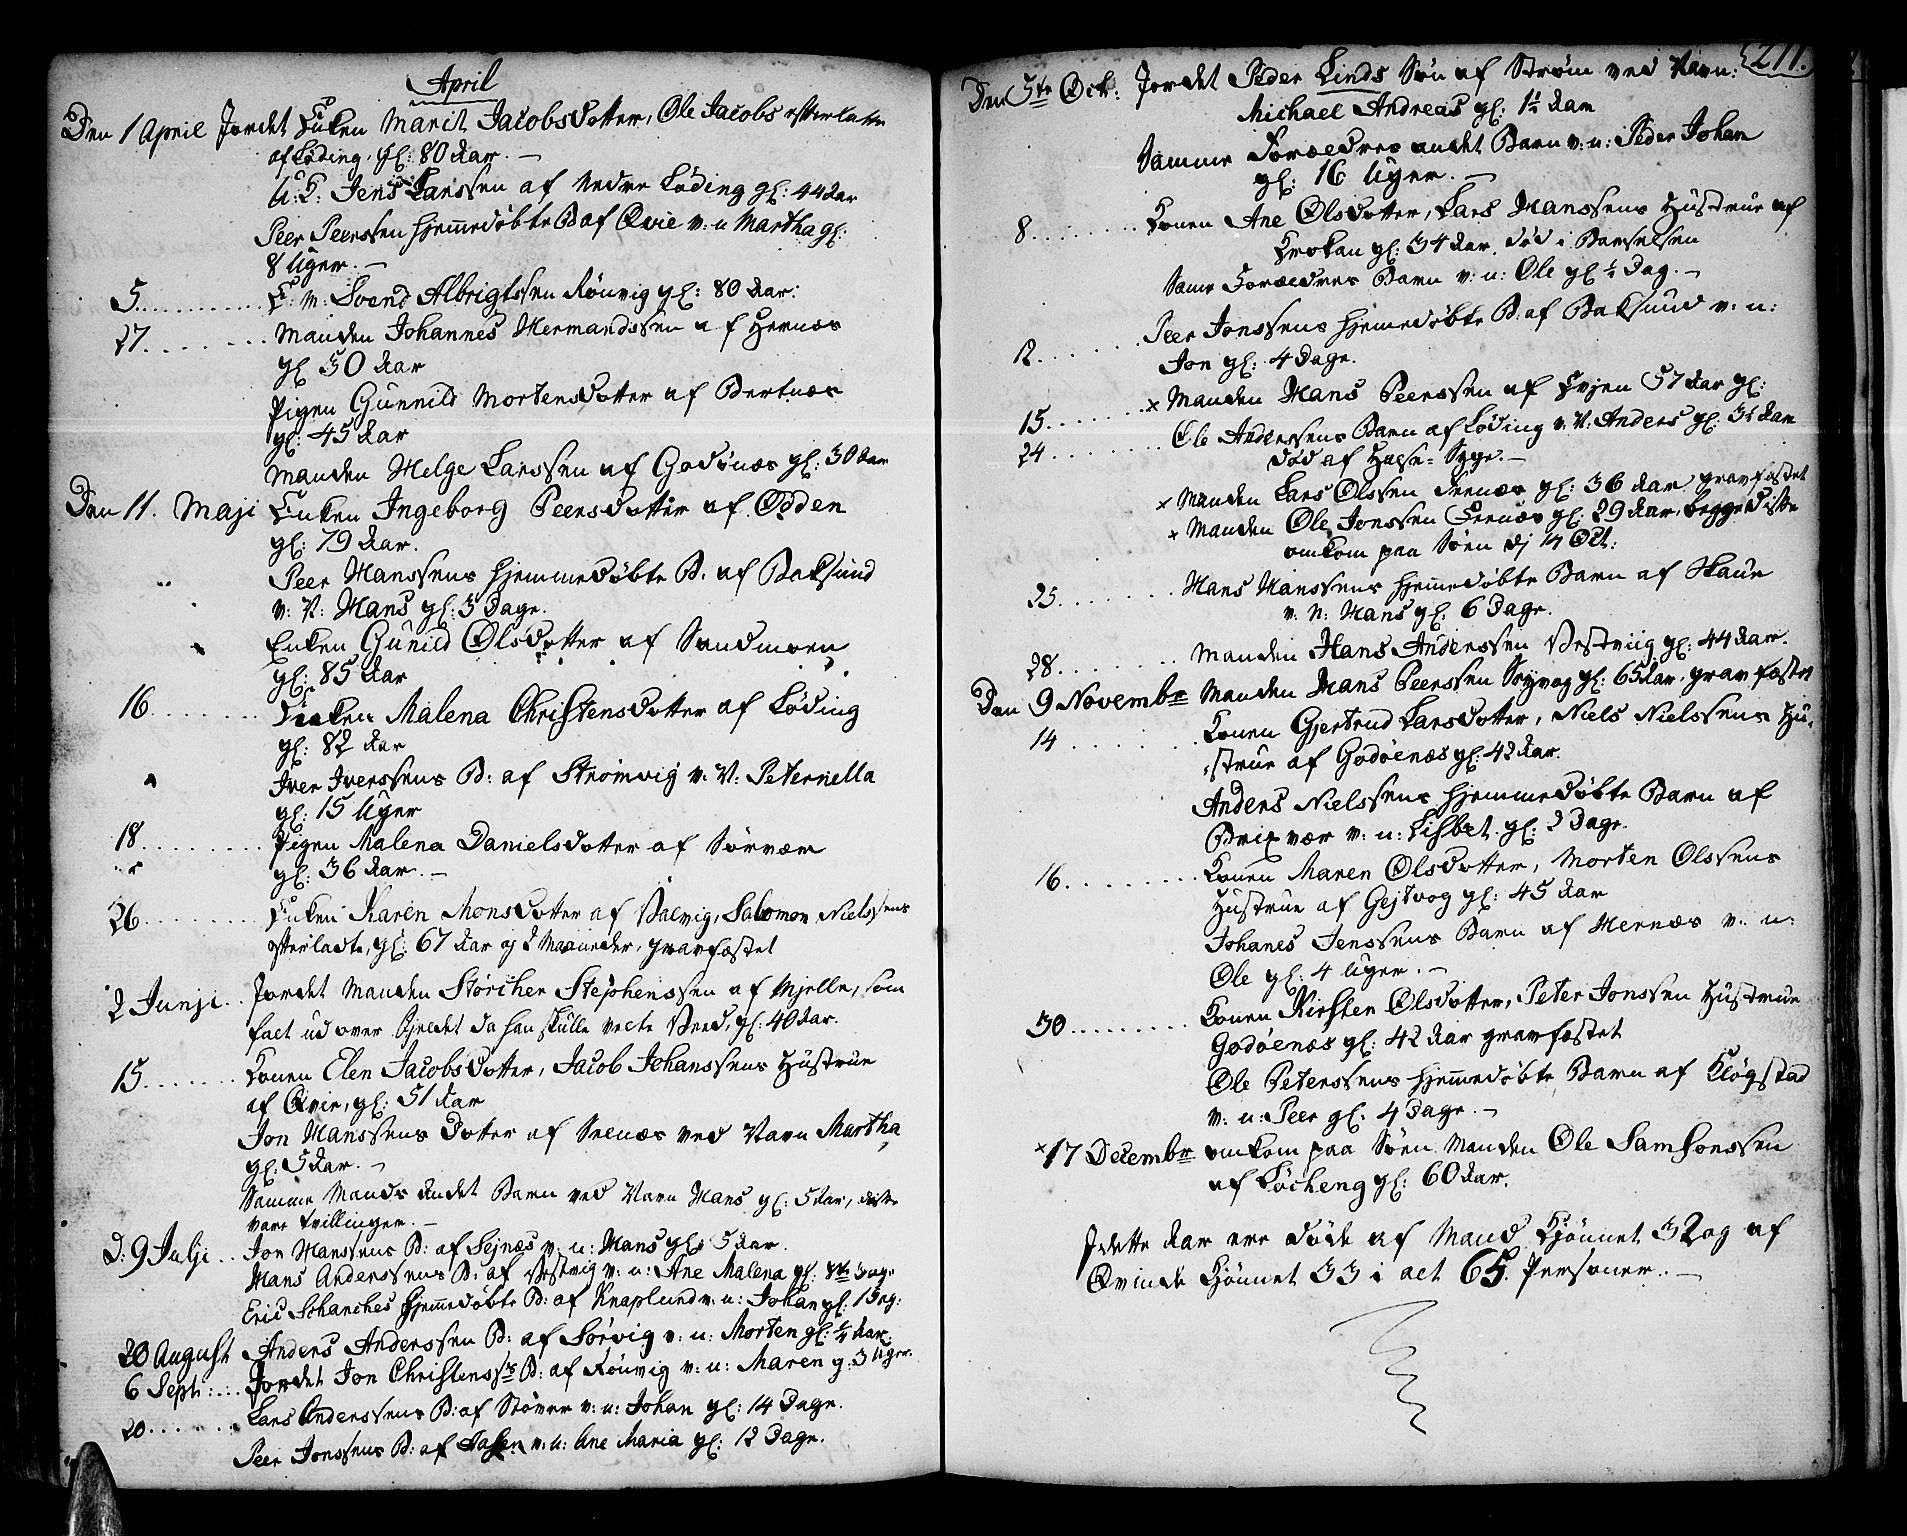 April
Den 1 April Jordet Enken Marit Jacobsdotter, Ole Jacobs efterladte
af Løding, gl: 80 Aar. —
U: K: Jens Larssen af Nedre Løding gl: 44 Aar
Peer Peerssen hjemmedøbte B af Qvie v: n Martha gl:
8 Uger. —
5. G: M: Svend Albrigtssen Rönvig gl: 80 Aar:
27. Manden Johannes Hermandssen af Hernæs
gl 50 Aar
Pigen Gunnild Mortensdotter af Bertnæs
gl: 45 Aar
Manden Helge Larssen af Godönæs gl: 30 Aar
Den 11. Maji Enken Ingeborg Peersdotter af Odden
gl: 79 Aar.
Peer Hanssens hjemmedöbte B. af Baksund
v: N: Hans gl: 3 Dage.
Enken Gunild Olsdotter af Sandmoen
gl: 85 Aar
16. Enken Malena Christensdotter af Løding
gl: 82 Aar
Iver Iverssens B: af Strömvig v: N: Peternella
gl: 15 Uger
18. Pigen Malena Danielsdotter af Sörvær
gl: 36 Aar. —
26. Enken Karen Monsdotter af Valvig, Salomon Nielssens
efterladte, gl: 67 Aar og 2 Maaneder, gravfæstet
2 Junji. Jordet Manden Störcher Stephenssen af Mjelle, som
falt ud over Fjeldet da han skulle veete Veed, gl: 40 Aar.
15. Konen Elen Jacobsdotter, Jacob Johanssens Hustrue
af Qvie, gl: 51 Aar
Jon Hanssens Dotter af Seenæs ved Navn Martha
gl: 5 Aar. —
Samme Mands Andet Barn ved Navn Hans gl: 5 Aar, disse
vare tvillinger. —
D: 9 Julji. Jon Hanssens B: af Sejnæs v: n: Hans gl: 5 Aar.
Hans Anderssens B: af Vestvig v: n: Ane Malena gl: 8 Dage
Eric Schanches hjemmedöbte B: af Knaplund v: n: Johan gl: 1 Dag:
20 August Anders Anderssen B: af Sörvig v: n: Morten gl: ¼ Aar
6 Sept: Jordet Jon Christenss: B: af Rönvig v: n: Maren g: 3 Uger.
20. Lars Anderssens B: af Stöver v: n: Johan gl: 14 Dage.
Peer Jonssens B: af v: n: Ane Maria gl: 12 Dage.
211.
Den 5te Oct: Jordet Peder Linds Sön af Ström ved Navn:
Michael Andreas gl: 1½ Aar
Samme Foræedres andet Barn v: n: Peder Johan
gl: 16 Uger. —
8. Konen Ane Olsdotter, Lars Hanssens Hustrue af
Krokan gl: 34 Aar. död i Barselsen
Samme Foræedres Barn v: n: Ole gl ½ Dag. —
12. Peer Jonssens hjemedöbte B: af Baksund v: n:
Jon gl: 4 Dage.
15. × Manden Hans Peerssen af Evjen 57 Aar gl:
24. Ole Anderssens Barn af Löding v: N: Anders gl: 3½ Aar
död af Halse=Syge. —
× Manden Lars Olssen Seenæs gl: 36 Aar gravfæstet
× Manden Ole Jonssen Seenæs gl: 29 Aar, begge Disse
omkom paa Söen dj 14 Oct:
25. Hans Hanssens hjemmedöbte Barn af Skaue
v: N: Hans gl: 6 Dage.
28. Manden Hans Anderssen Vestviig gl: 44 Aar.
Den 9 Novembr Manden Hans Peerssen Seyvog gl: 65 Aar, gravfæstet
14. Konen Gjertrud Larsdotter, Niels Nielssens Hu-
strue af Godöenæs gl: 42 Aar.
Anders Nielssens hjemmedöbte Barn af
Brixvær v: n: Lisbet gl: 3 Dage.
16. Konen Maren Olsdotter, Morten Olssens
Hustrue af Gejtvog gl: 45 Aar
Johanes Jenssens Barn af Hernæs v: n:
Ole gl: 4 Uger. —
30. Konen Kirsten Olsdotter, Peter Jonssen Hustrue
Godöenæs gl: 42 Aar gravfæstet
Ole Peterssens hjemmedöbte Barn af Klögstad
v: n: Peer gl: 4 Dage. —
×17 Decembr omkom paa Söen Manden Ole Samsonssen
af Löcheng gl: 60 Aar.
I dette Aar ere döde af Mand Kjönnet 32 og af
Qvinde Kjönnet 33 i alt 65. Personer. —